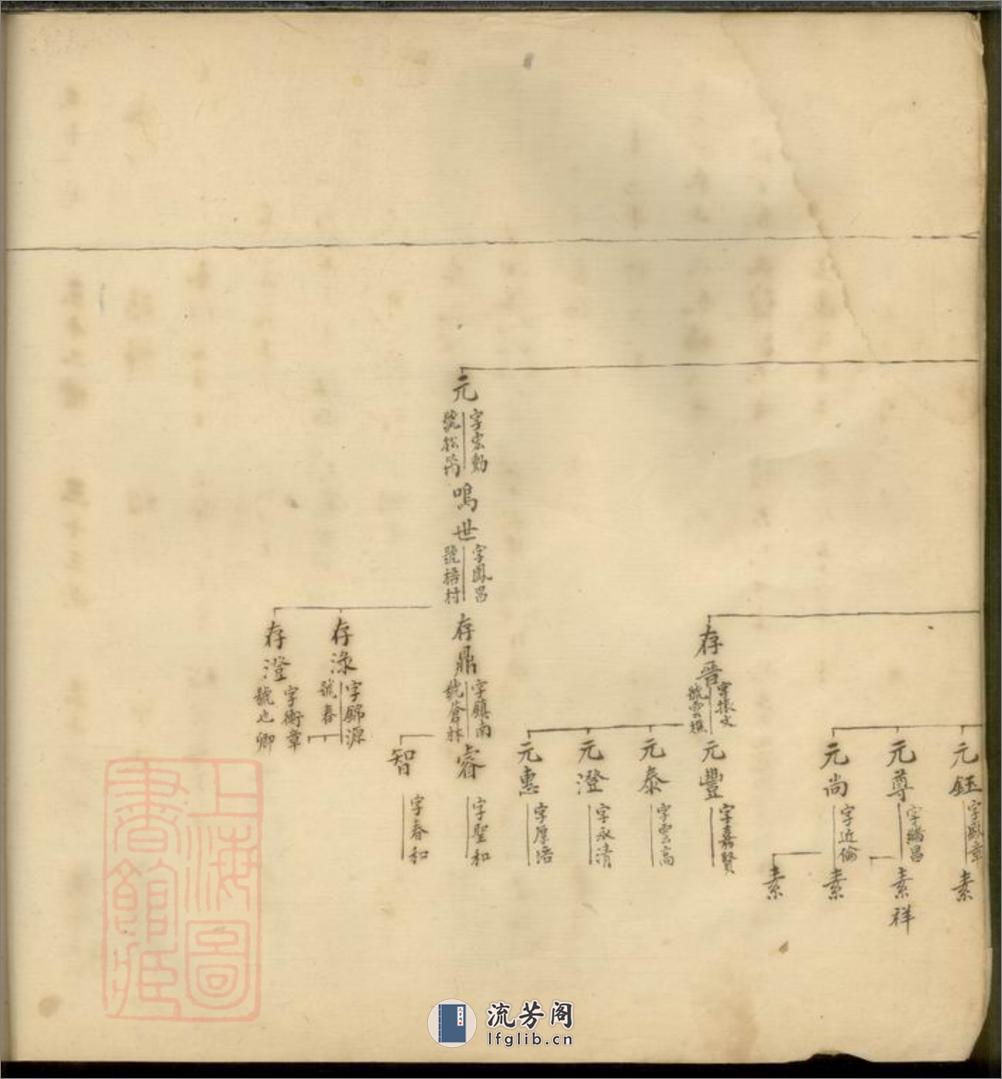 元鈺
字
素
元尊
字繡昌
素祥
元尚
字近倫
素
素
存晉
字振文
號雲
元豐
字嘉賢
元泰
字雲高
元澄
字永清
元惠
字厚浯
元
字宏勳
號松
鳴世
字鳳昌
號梧村
存鼎
字鎮南
號蒼林
睿
字聖和
智
字春和
存淥
字錦源
號春
存澄
字衛章
號也卿
上海圖
書館藏
流芳阁
lfglib.cn